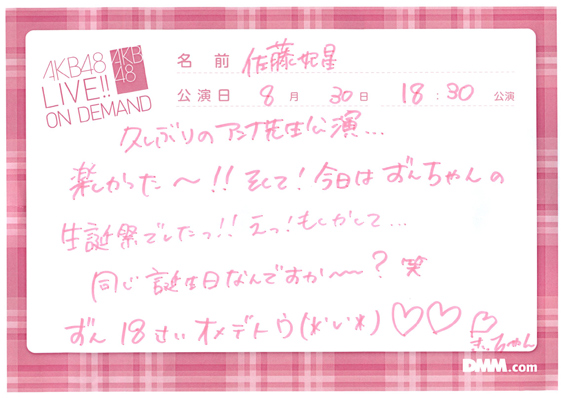 AKB48
LIVE!!
ON DEMAND
AKB
48
名前 佐藤妃星
公演日 8月 30日 18:30 公演
久しぶりのアンナ先生公演...
楽しかった〜!! そして! 今日はずんちゃんの
生誕祭でしたっ!! えっ! もしかして...
同じ誕生日なんですか〜〜? 笑
ずん 18さい オメデトウ(*い*)♡♡♡
きぃちゃん
DMM.com